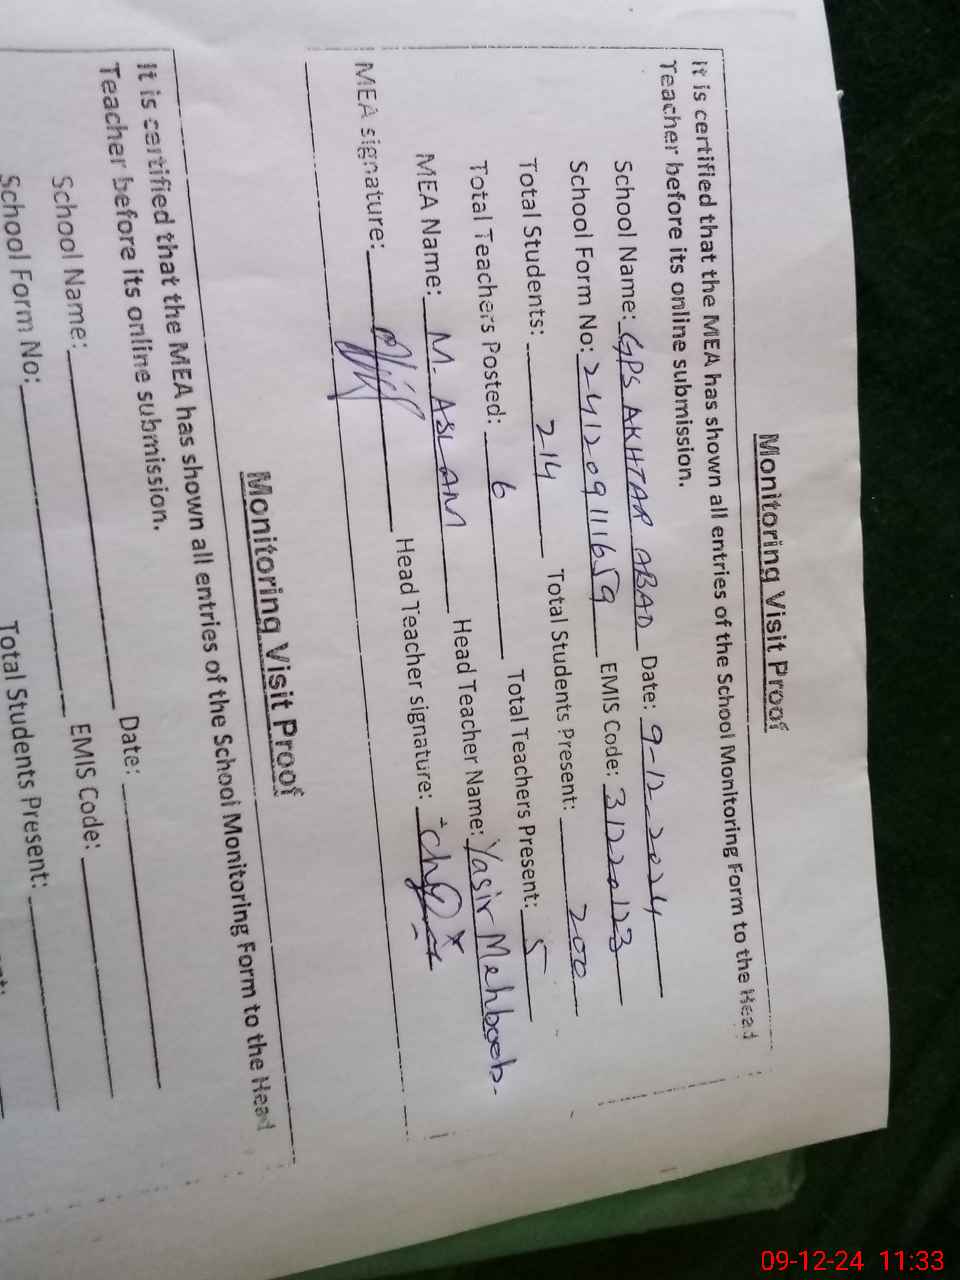 Monitoring Visit Proof
It is certified that the MEA has shown all entries of the School Monitoring Form to the Head
Teacher before its online submission.
School Name: GPS AKHTAR ABAD Date: 9-12-2024
School Form No: 241209111659 EMIS Code: 31220123
Total Students: 214 Total Students Present: 200
Total Teachers Posted: 6 Total Teachers Present: 5
MEA Name: M. ASLAM Head Teacher Name: Yasir Mehboob.
MEA signature: Head Teacher signature:
Monitoring Visit Proof
It is certified that the MEA has shown all entries of the School Monitoring Form to the Head
Teacher before its online submission.
School Name: Date:
School Form No: EMIS Code:
Total Students Present:
09-12-24 11:33